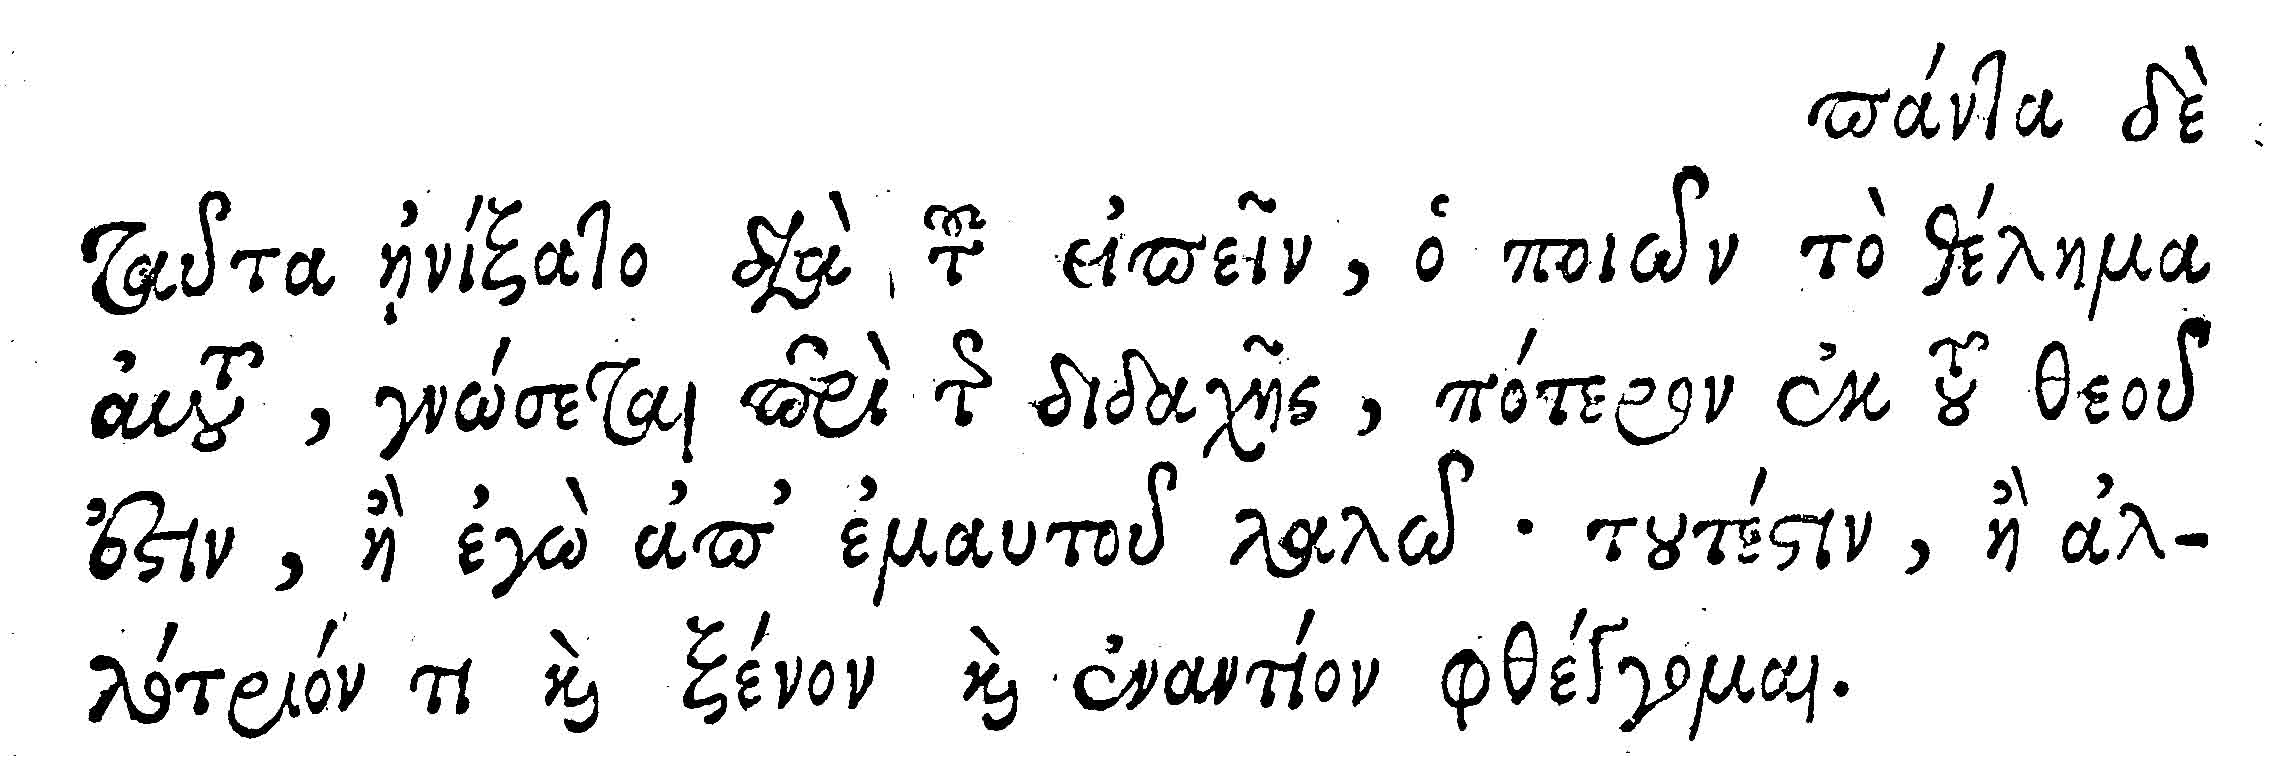 πάντα δὲ
ταῦτα ᾐνίξατο διὰ τοῦ εἰπεῖν, ὁ ποιῶν τὸ θέλημα
αὐτοῦ, γνώσεται περὶ τῆς διδαχῆς, πότερον ἐκ τοῦ θεοῦ
ἐστιν, ἢ ἐγὼ ἀπ’ ἐμαυτοῦ λαλῶ · τουτέστιν, ἢ ἀλ-
λότριόν τι καὶ ξένον καὶ ἐναντίον φθέγγομαι.